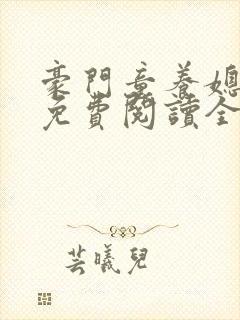 豪門童養媳
免費閱讀全
芸曦兒